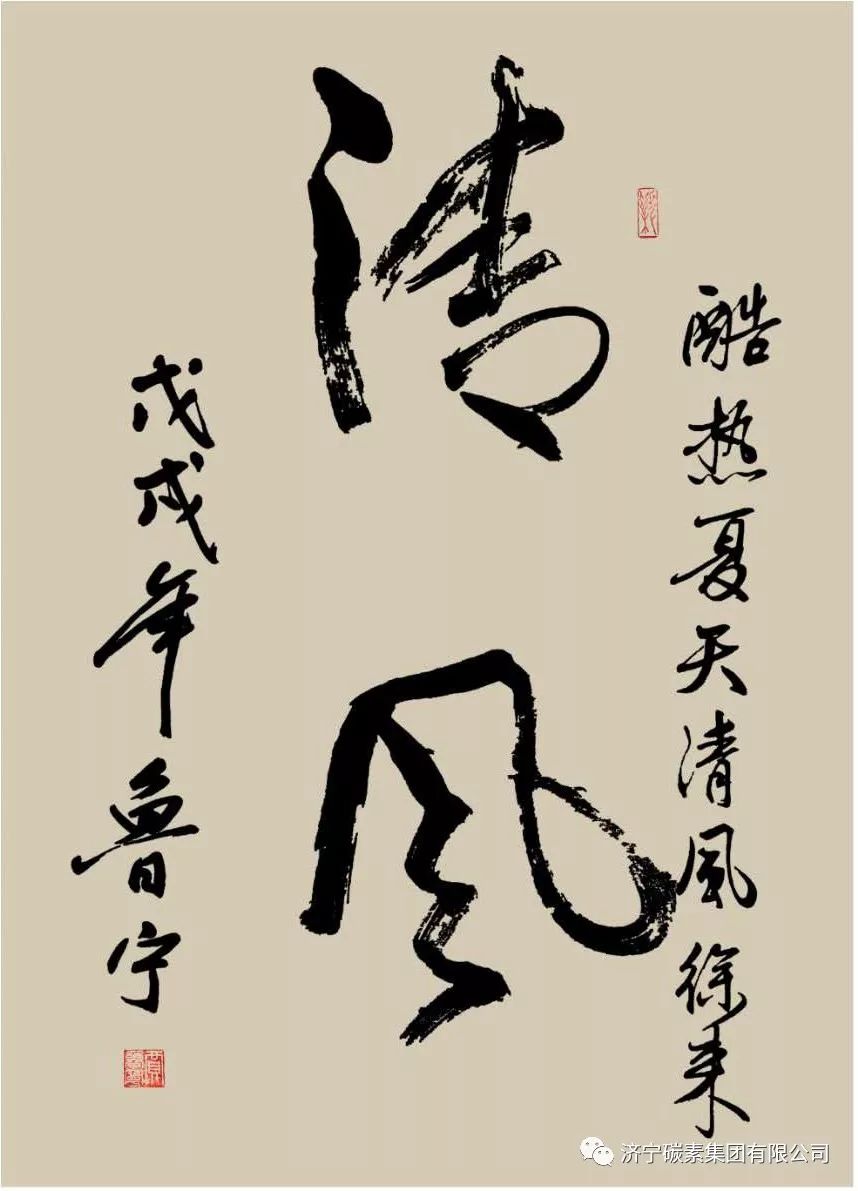 酷热夏天清風徐来
清风
戊戌年鲁宁
济宁碳素集团有限公司